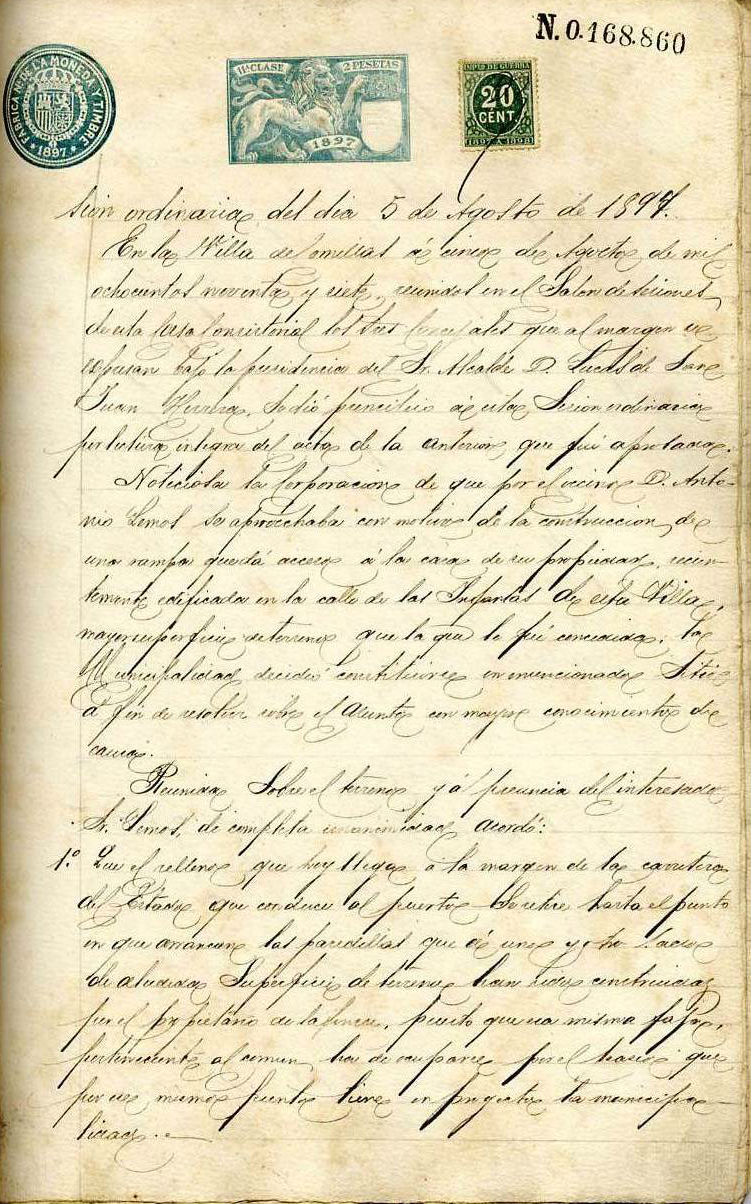 N. 0.168.860
FABRICA NAL. DE LA MONEDA Y TIMBRE
* 1897 *
11ª CLASE 2 PESETAS
1897
IMPTO DE GUERRA
20
CENT.
1897 A 1898
sion ordinaria del dia 5 de Agosto de 1897.
En la Villa de Comillas á cinco de Agosto de mil
ochocientos noventa y siete, reunidos en el Salon de sesiones
de esta Casa Consistorial los Sres Concejales que al margen se
espresan bajo la presidencia del Sr. Alcalde D. Lucas de San
Juan Herrera, se dió principio á esta Sesion ordinaria
por lectura integra del acta de la anterior que fué aprobada.
Noticiosa la Corporacion de que por el vecino D. Anto-
nio Lemos se aprovechaba con motivo de la construccion de
una rampa que dá acceso á la casa de su propiedad, recien-
temente edificada en la calle de las Infantas de esta Villa,
mayor superficie de terreno que la que le fué concedida; la
Municipalidad decidió constituirse en mencionado Sitio
á fin de resolver sobre el asunto con mayor conocimiento de
causa.
Reunida Sobre el terreno y á presencia del interesado
Sr. Lemos, de completa unanimidad acordó:
1.º Que el relleno que hoy llega á la margen de la carretera
del Estado que conduce al puerto Se retire hasta el punto
en que arrancan las paredillas que á uno y otro Lado
de aludida Superficie de terreno han sido construidas
por el propietario de la finca, puesto que esa misma faja,
perteneciente al comun, ha de ocuparse por el que
por ese mismo punto tiene en proyecto la municipa-
lidad.